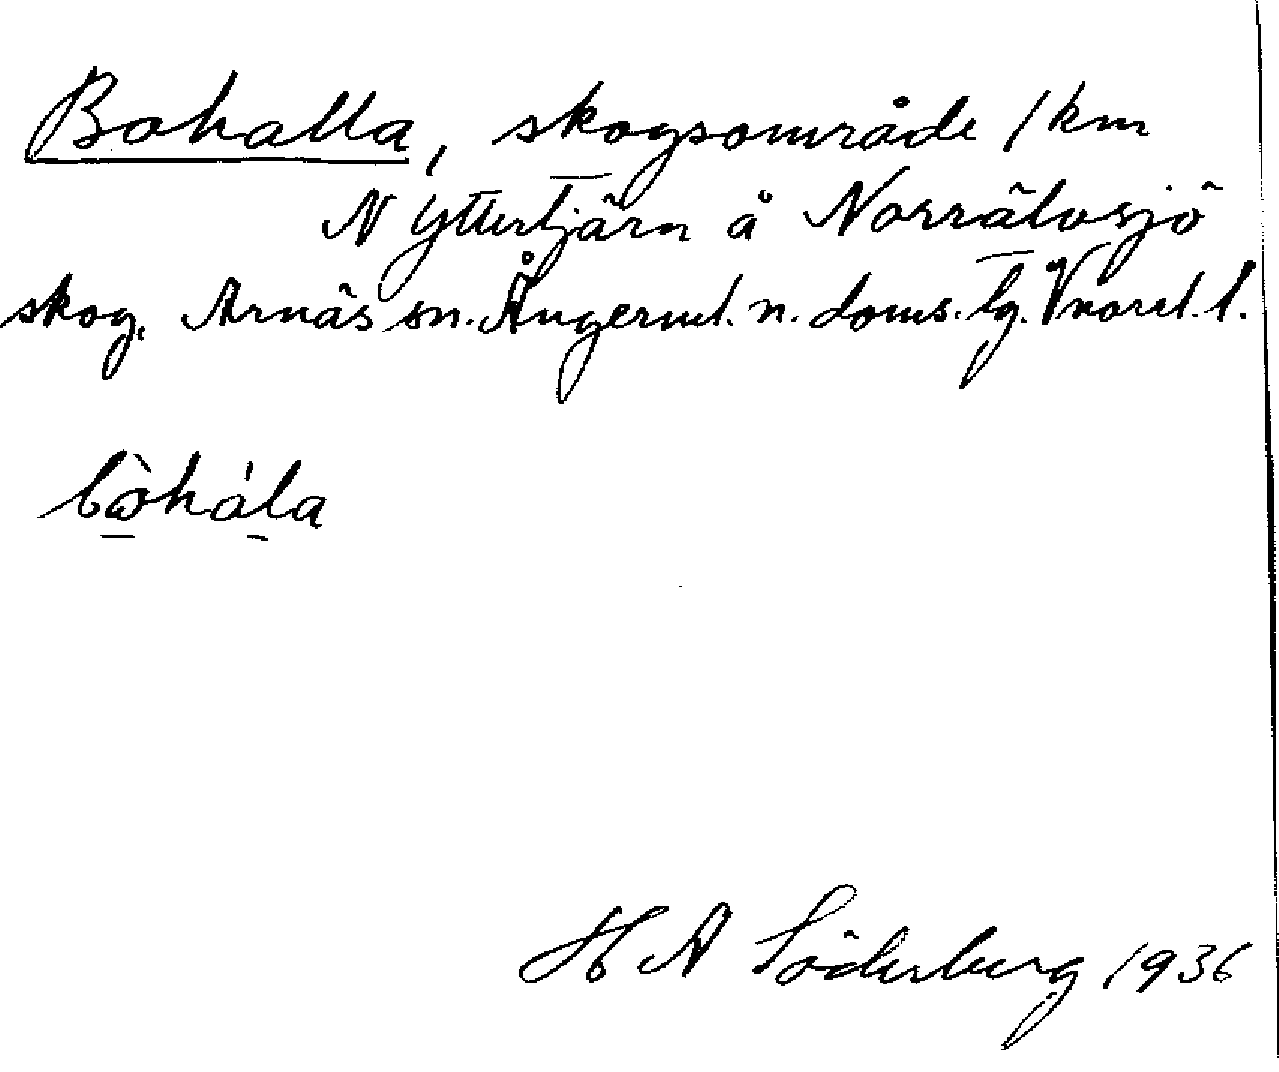 Bohalla, skogsområde 1 km
N Yttertjärn å Norrälvsjö
skog, Arnäs sn. Ångerml. n. doms. lg. Vnorrl. l.
bòhála
H A Söderberg 1936